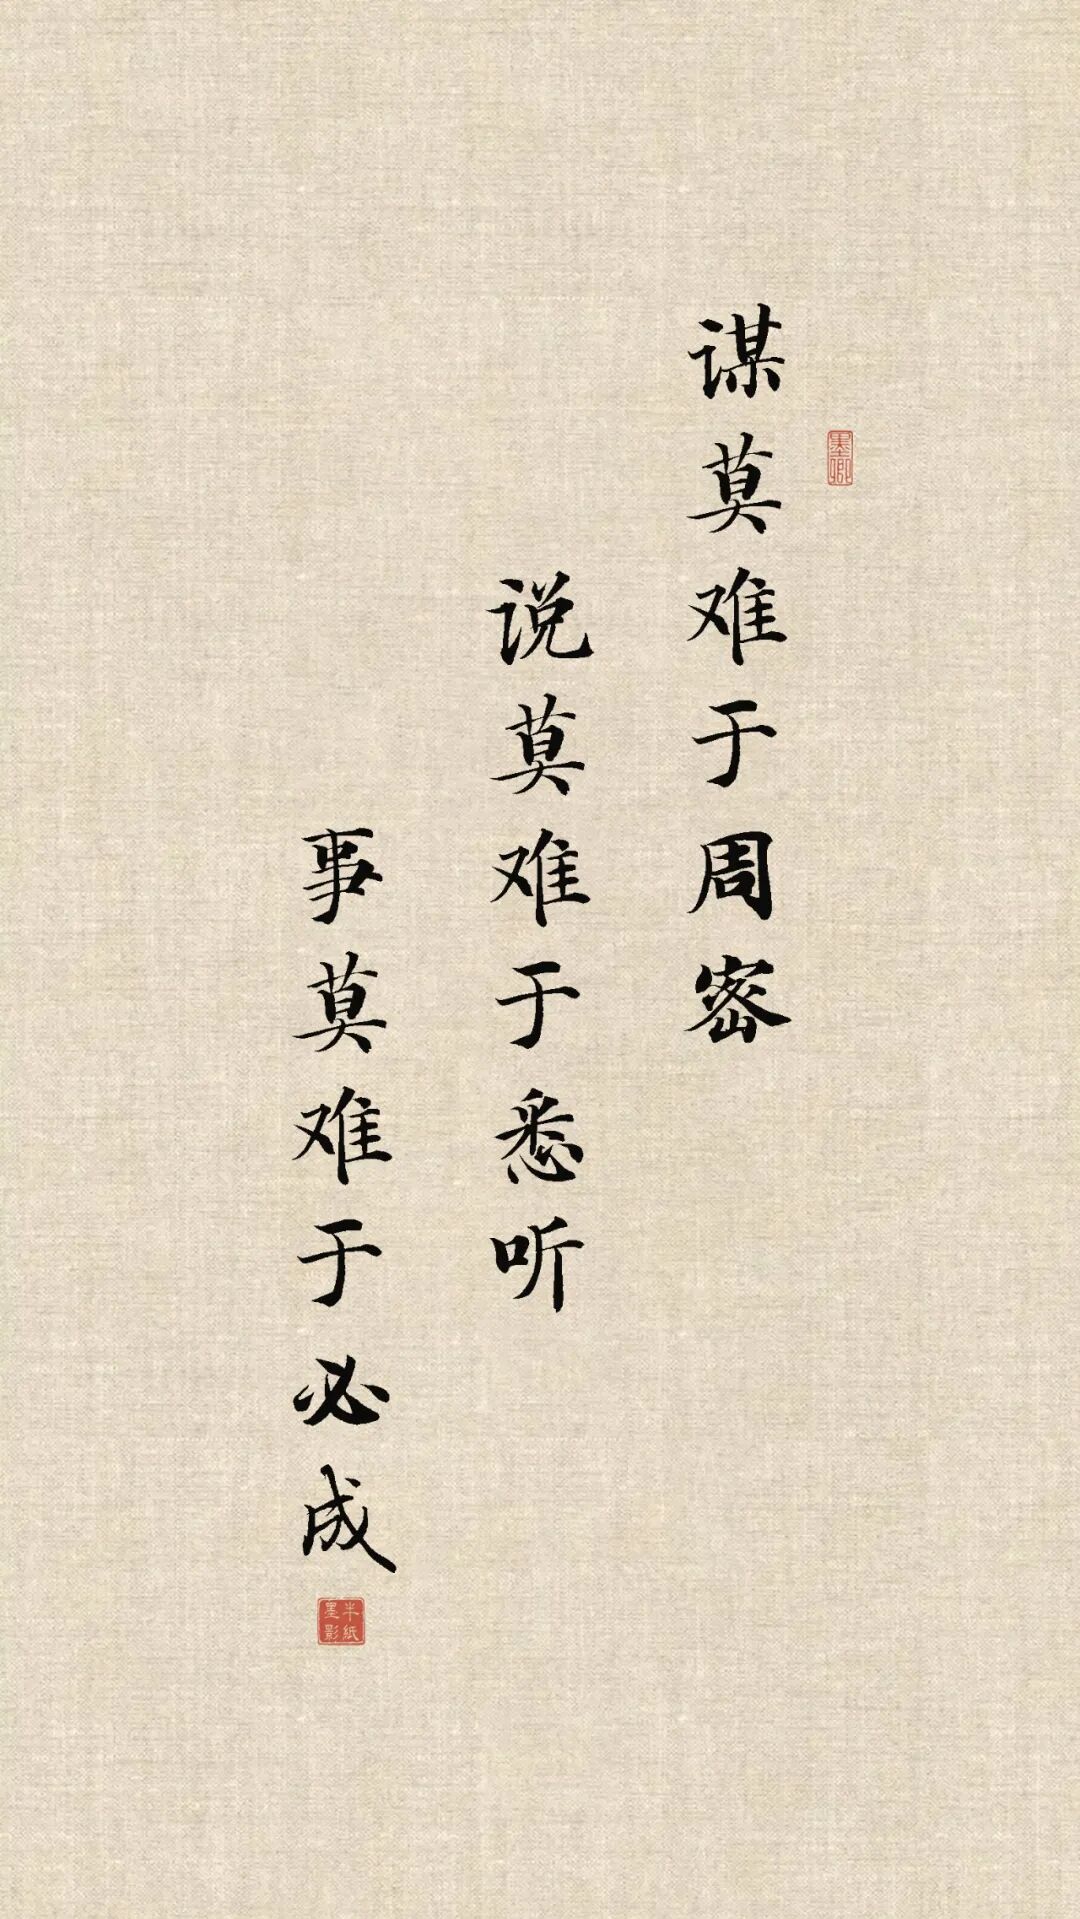 谋莫难于周密
说莫难于悉听
事莫难于必成
墨卿
半纸
墨影